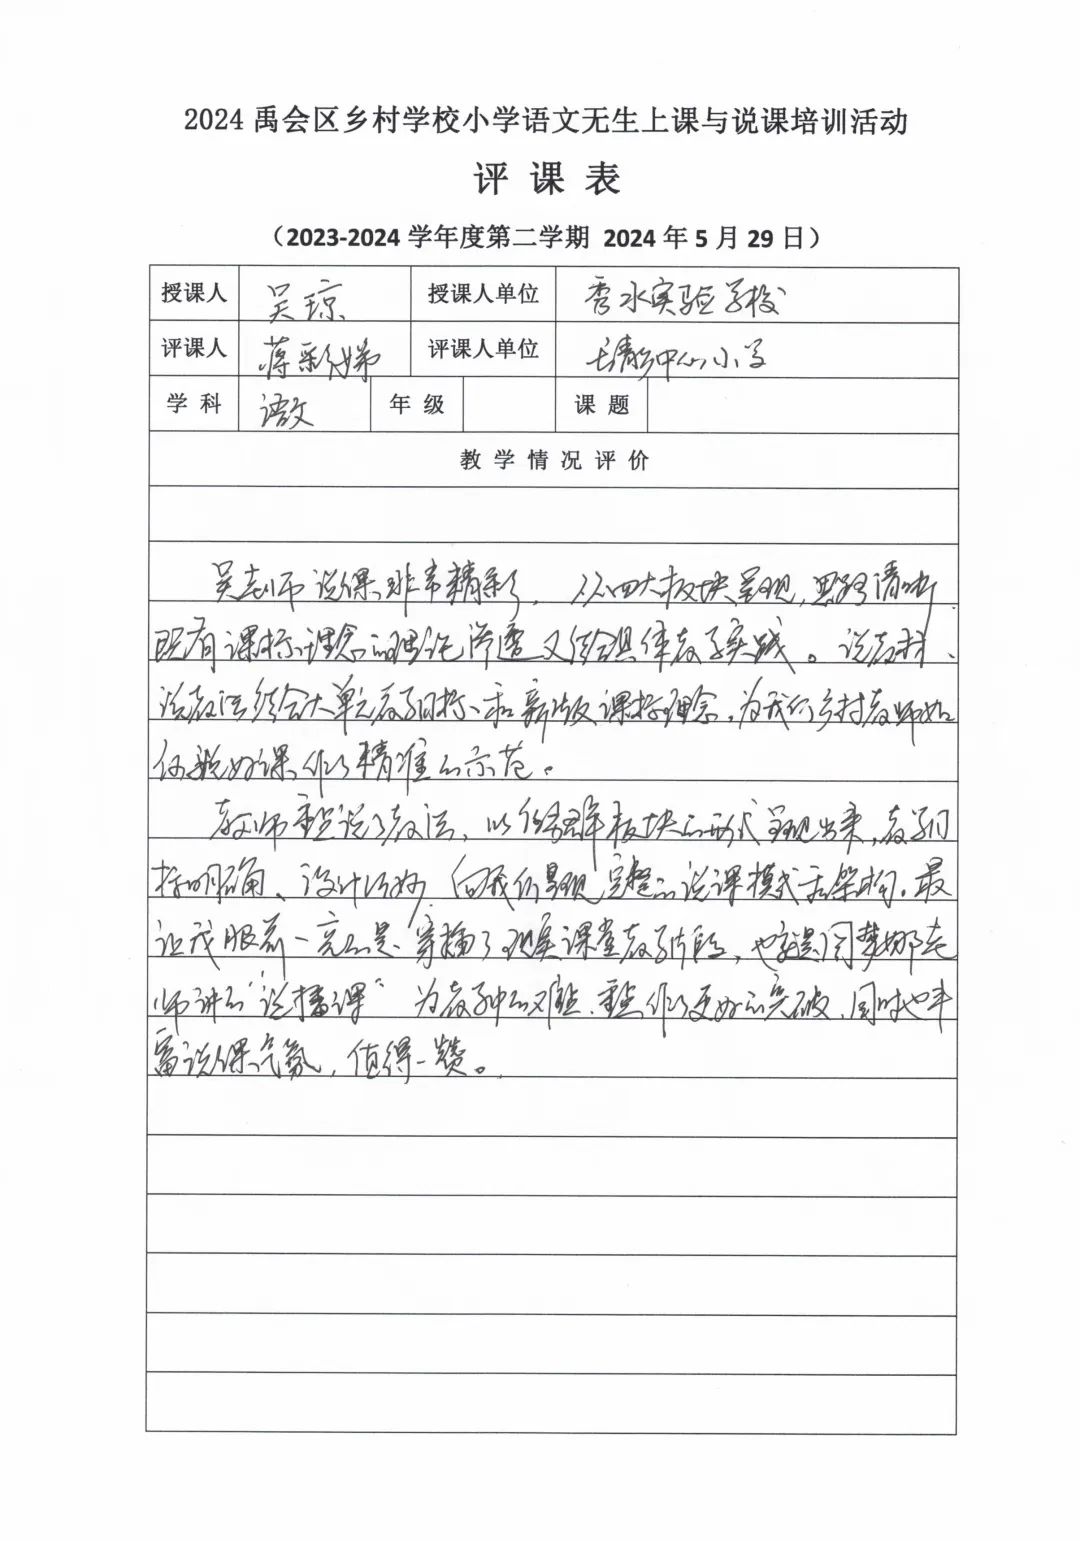 2024禹会区乡村学校小学语文无生上课与说课培训活动
评 课 表
（2023-2024 学年度第二学期 2024 年 5 月 29 日）
授课人 吴琼 授课人单位 秀水实验学校
评课人 蒋彩娣 评课人单位 长青乡中心小学
学 科 语文 年 级 课 题
教 学 情 况 评 价
吴老师说课非常精彩，以四大板块呈现，思路清晰，
既有课标理念的理论渗透又结合具体教学实践。说教材、
说教法结合大单元教学目标和新版课标理念，为我们乡村教师如
何说好课作了精准的示范。
教师重点说了教法，以任务群板块的形式呈现出来，教学目
标明确、设计巧妙，向我们呈现完整的说课模式和架构。最
让我眼前一亮的是穿插了现实课堂教学片段，也就是周梦娜老
师讲的“说播课” 为教学中的难点、重点作了更好的突破，同时也丰
富说课气氛，值得一赞。